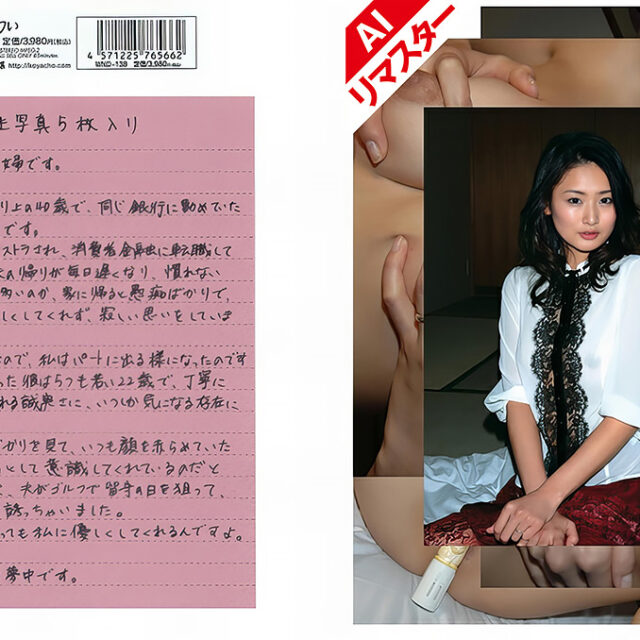 定価/3,980円(税込)
4 571225 765662
定価/3,980円(税込)
http://koyacho.com
生写真5枚入り
婦です。
り上の40歳で、同じ銀行に勤めていた
です。
ストラされ、消費者金融に転職して
の帰りが毎日遅くなり、慣れない
多いのか、家に帰ると愚痴ばかりで、
しくしてくれず、寂しい思いをしていま
ので、私はパートに出る様になったのです
った彼はうちも若い22歳で、丁寧に
れる誠実さに、いつしか気になる存在に
ばかりを見て、いつも顔を赤らめていた
として意識してくれているのだと
、夫がゴルフで留守の日を狙って、
誘っちゃいました。
っても私に優しくしてくれるんですよ。
夢中です。
AI
リマスター